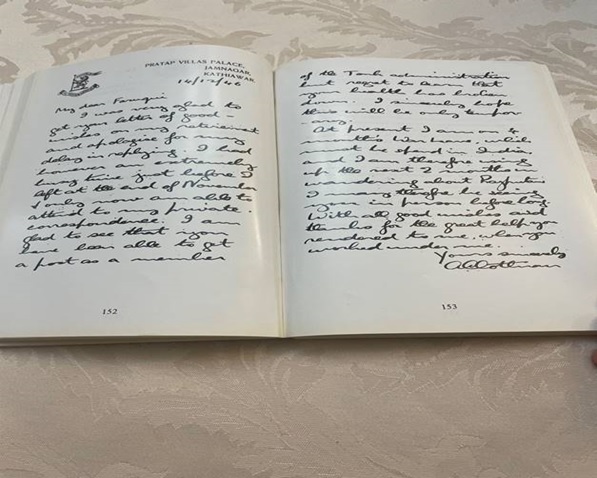 PRATAP VILLAS PALACE,
JAMNAGAR,
KATHIAWAR.
14/12/46
My dear Faruqui
I was very glad to
get your letter of good-
wishes on my retirement
and apologise for my
delay in replying. I had
however an extremely
busy time just before I
left at the end of November
& only now am able to
attend to my private
correspondence. I am
glad to see that you
have been able to get
a post as a member
152
of the Tonk administration
but regret to learn that
your health has broken
down. I sincerely hope
this will be only tempor-
ary.
At present I am on 4
months leave, which
must be spent in India
and I am therefore
up the next 2 months
wandering about Rajputana
I may therefore be seeing
you in person before long.
With all good wishes and
thanks for the great help you
rendered to me, when you
worked under me.
Yours sincerely
153